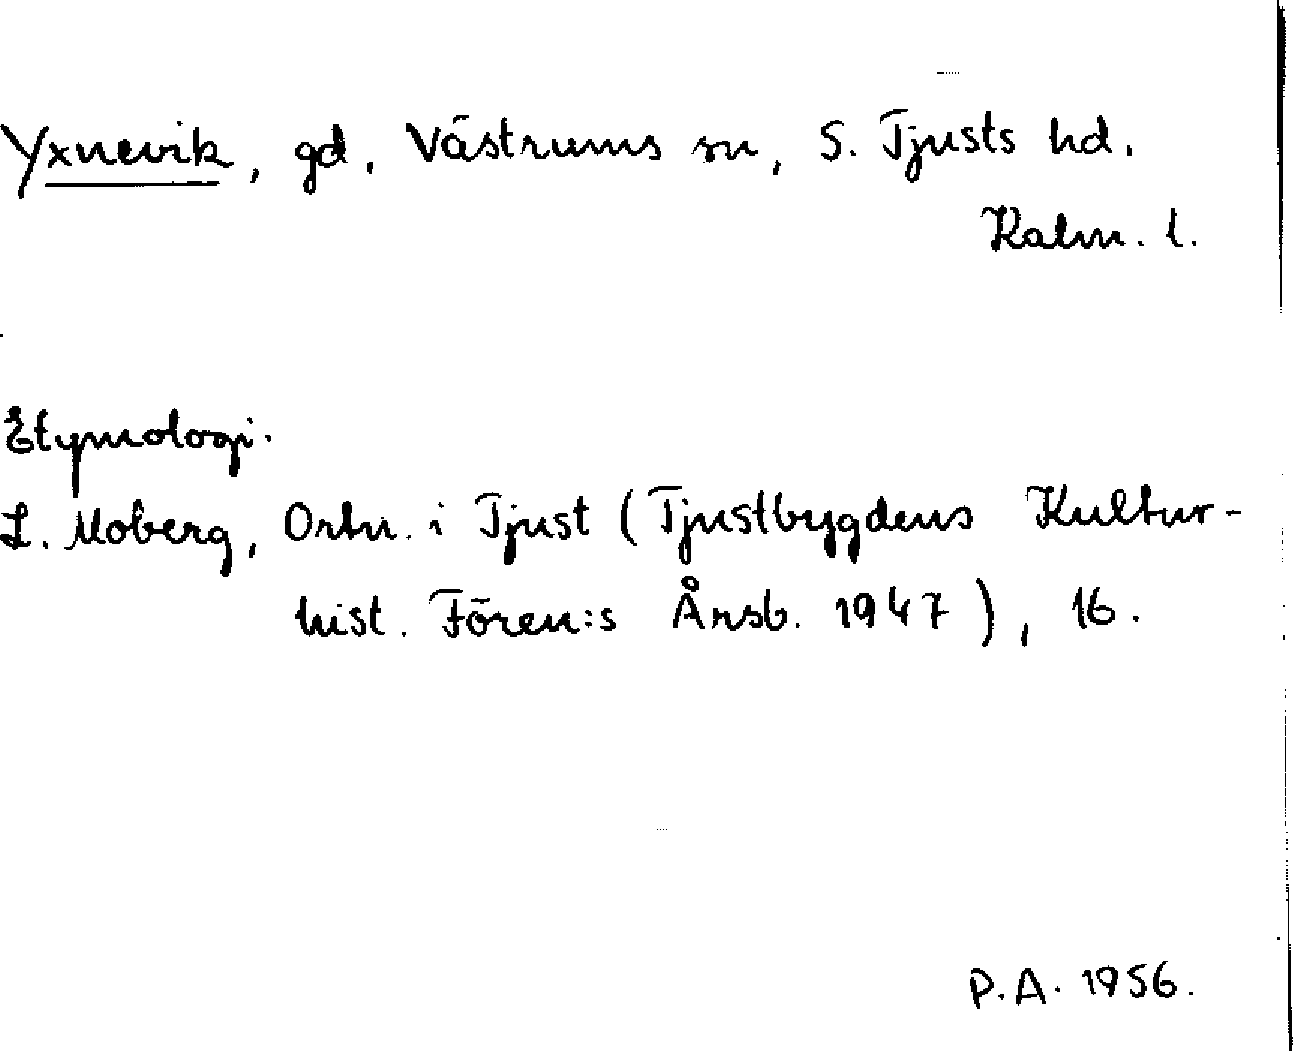 Yxnevik, gd, Västrums sn, S. Tjusts hd.
Kalm. l.
Etymologi.
L. Moberg, Ortn. i Tjust (Tjustbygdens Kultur-
hist. Fören:s Årsb. 1947), 16.
P.A. 1956.